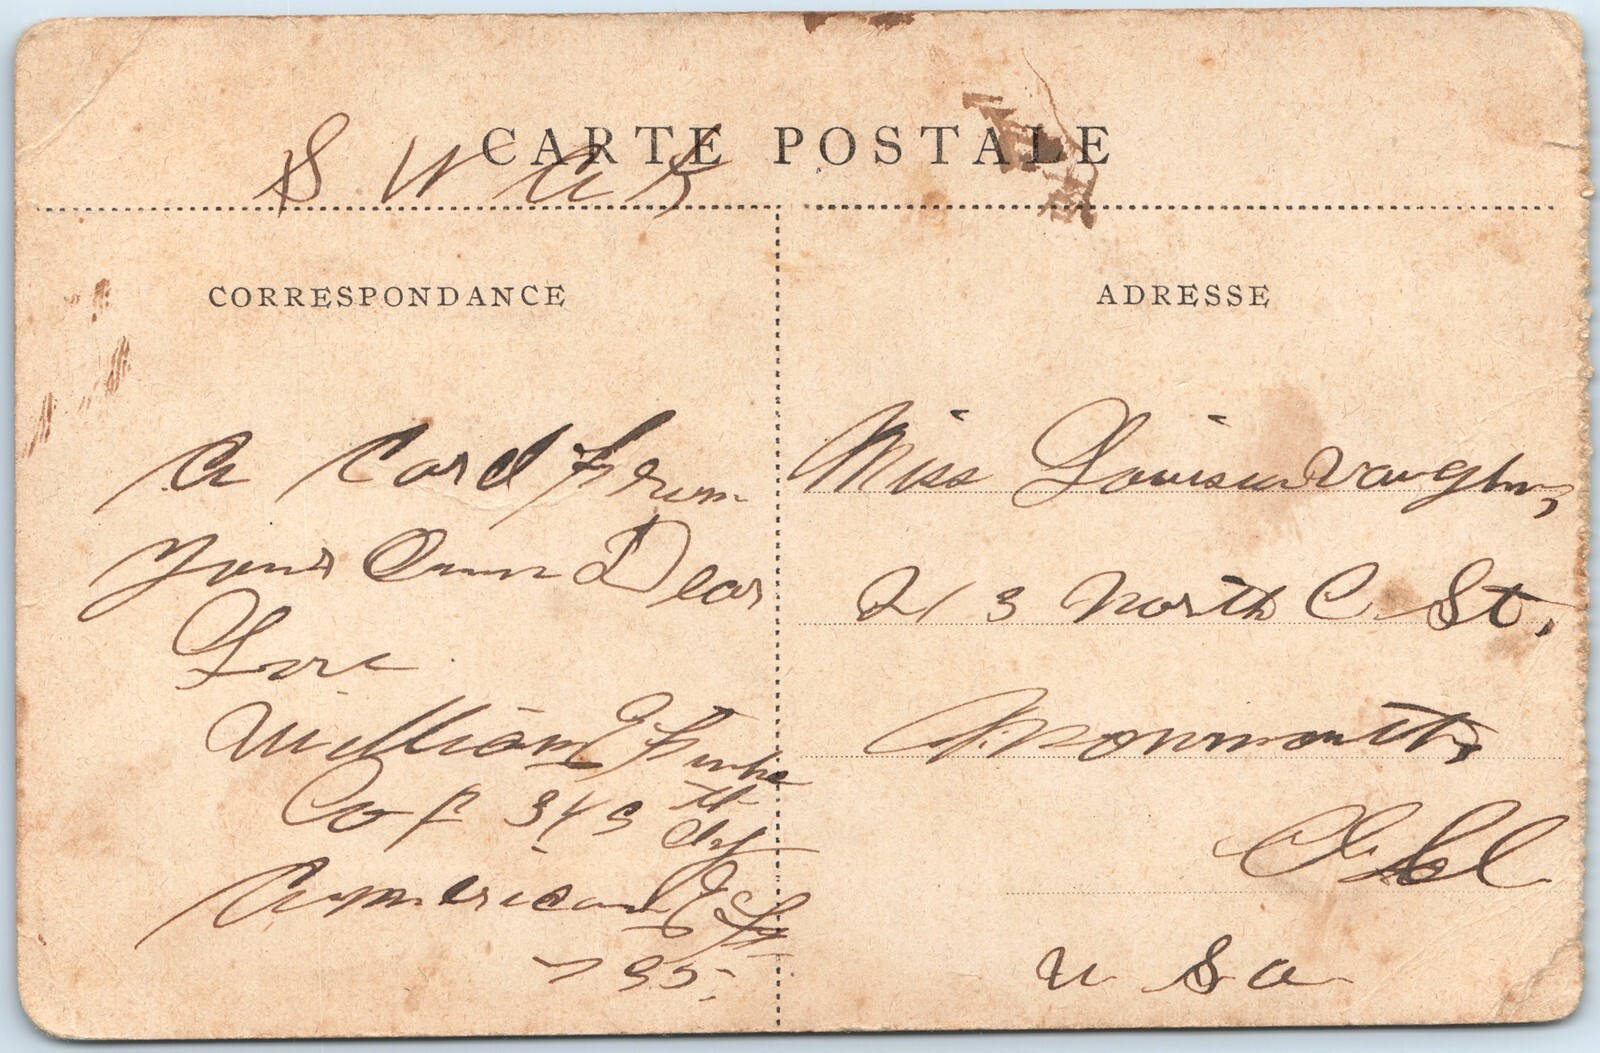 CARTE POSTALE
S W A K
CORRESPONDANCE
A Card From
Your Own Dear
Love
William E
Co F 343 th Inf
American E F
795
ADRESSE
Miss Louisa Vaughn,
213 North C St,
Monmouth,
Ill
U S A